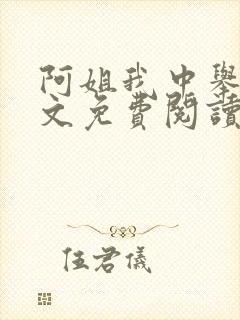 阿姐我中舉
文免費閱讀
伍君儀